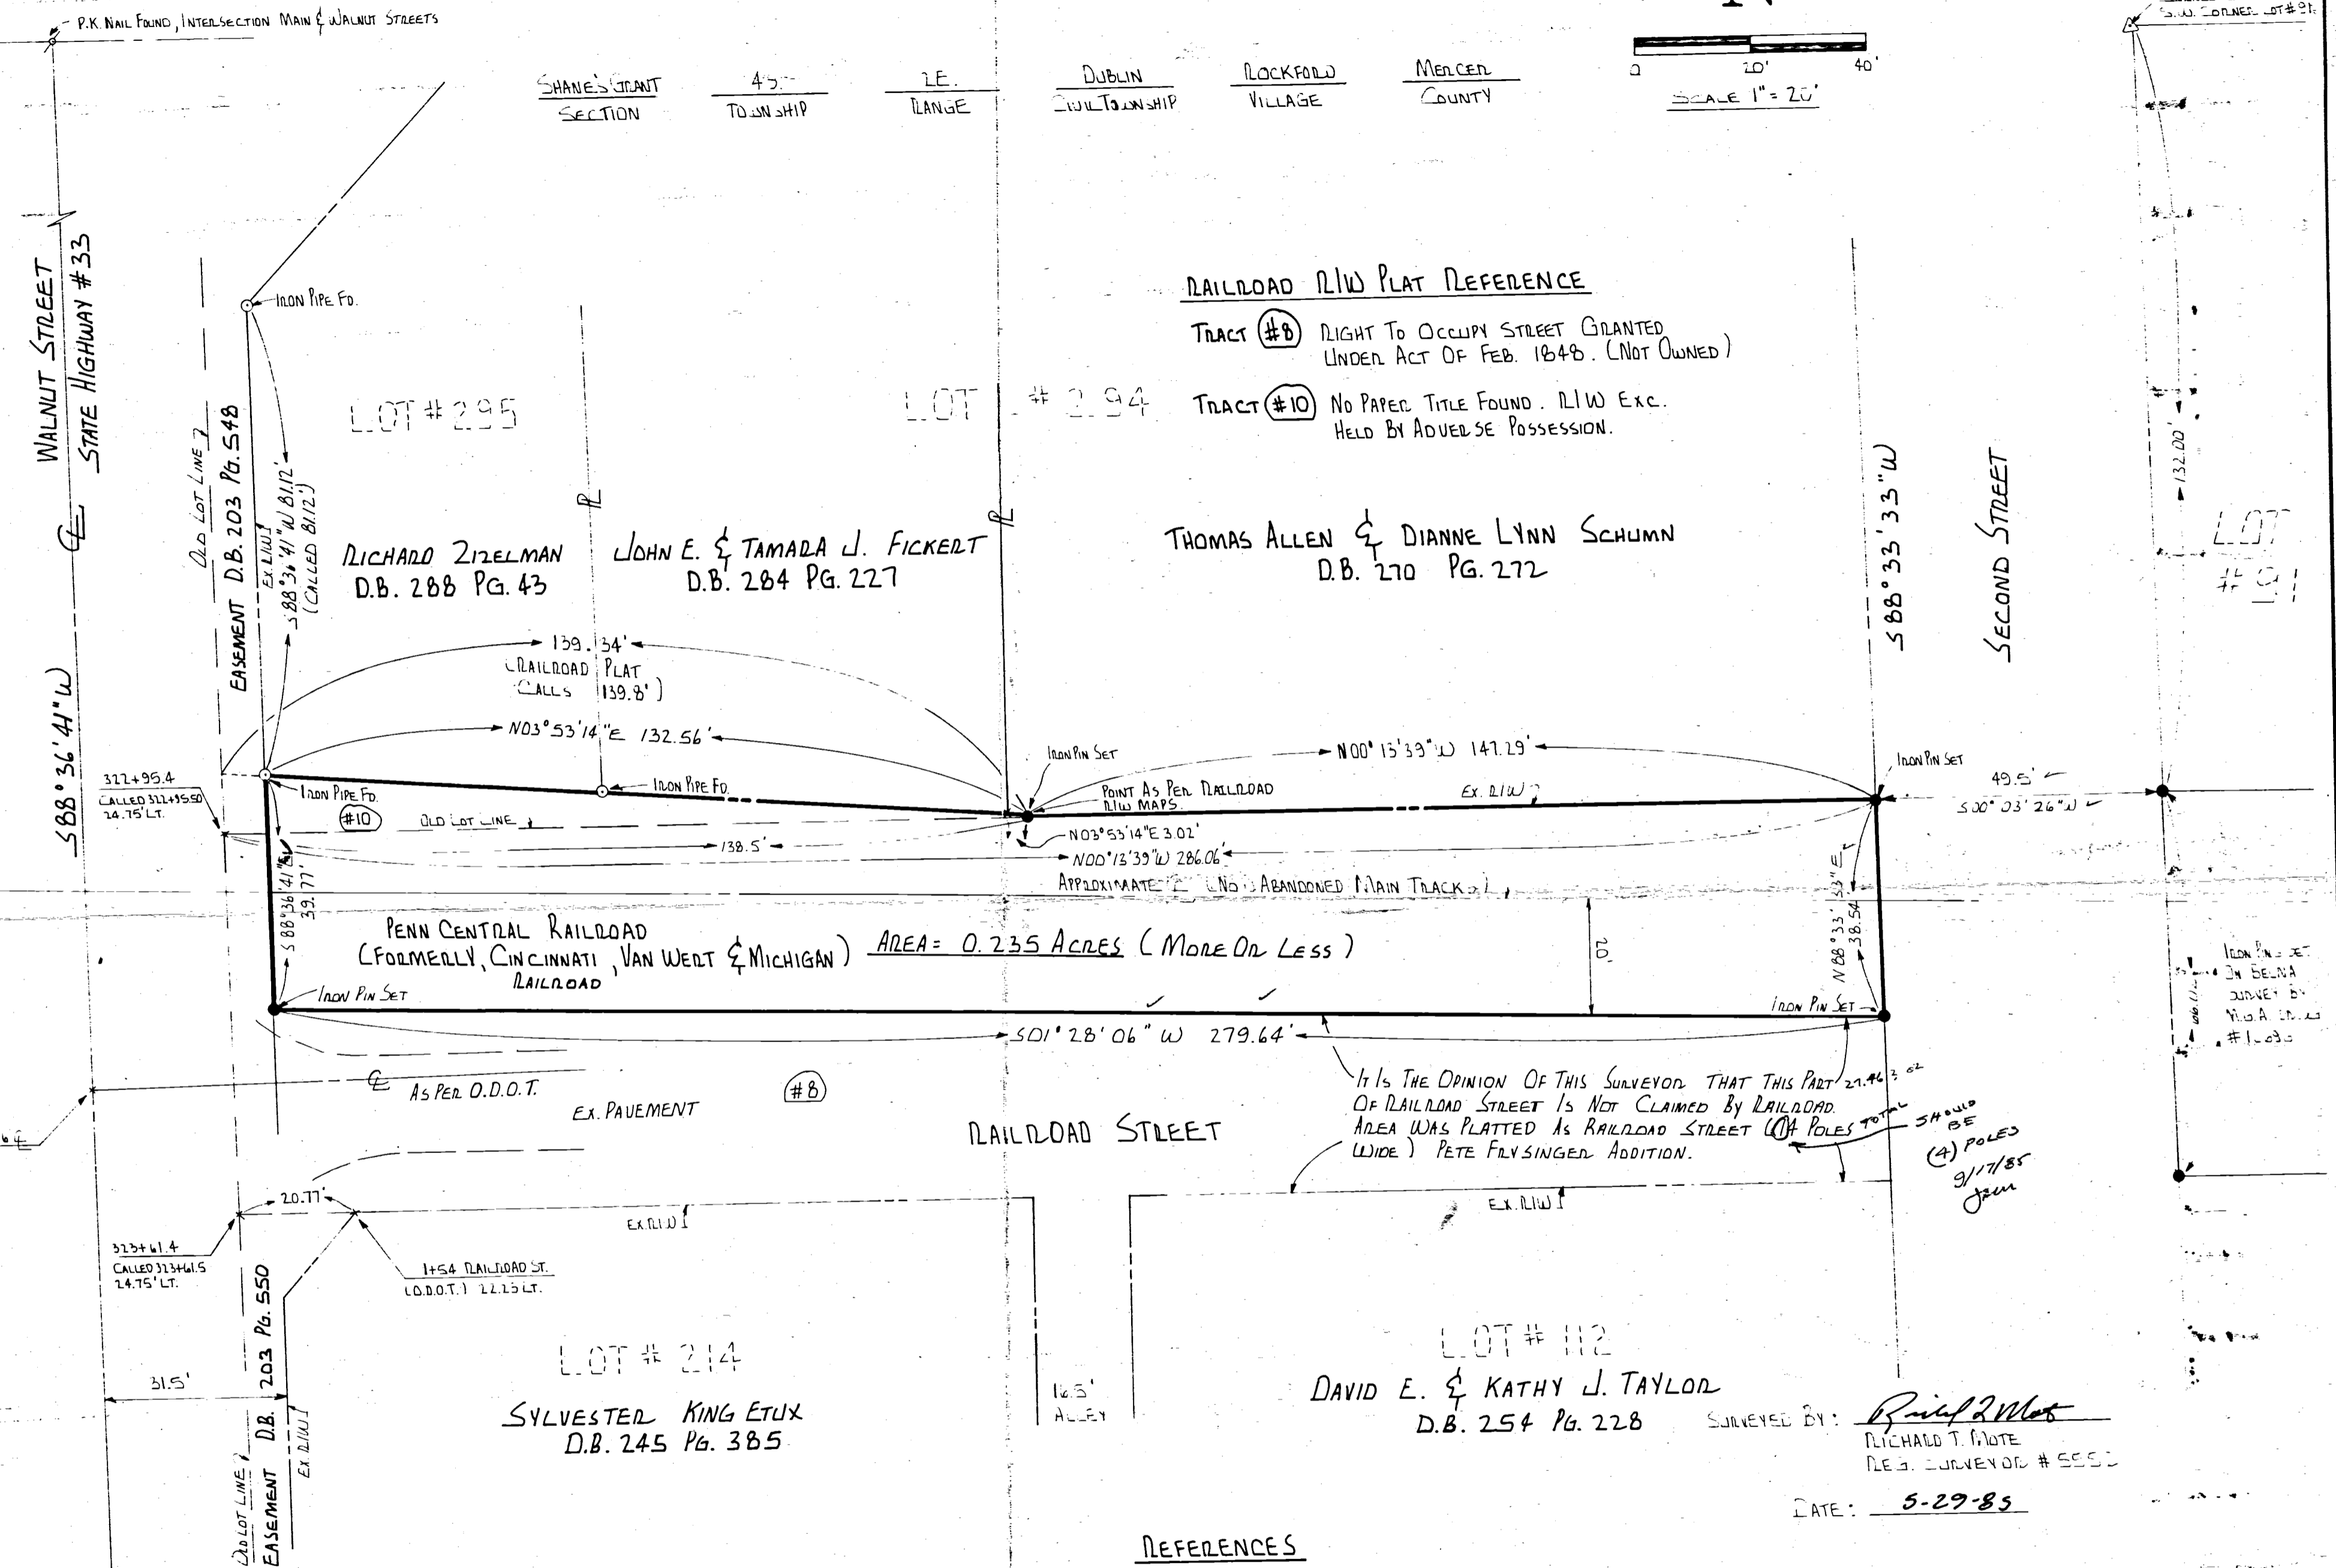 P.K. NAIL FOUND, INTERSECTION MAIN & WALNUT STREETS
S.W. CORNER LOT #91
SHANE'S GRANT
SECTION
4S.
TOWNSHIP
2E.
RANGE
DUBLIN
CIVIL TOWNSHIP
ROCKFORD
VILLAGE
MERCER
COUNTY
0 20' 40'
SCALE 1" = 20'
WALNUT STREET
STATE HIGHWAY #33
S88°36'41"W
OLD LOT LINE
EASEMENT D.B. 203 PG. 548
EX. R/W
S88°36'41"W 81.12'
(CALLED 81.12')
IRON PIPE FD.
LOT #295
LOT #294
RAILROAD R/W PLAT REFERENCE
TRACT #8 RIGHT TO OCCUPY STREET GRANTED
UNDER ACT OF FEB. 1848. (NOT OWNED)
TRACT #10 NO PAPER TITLE FOUND. R/W EXC.
HELD BY ADVERSE POSSESSION.
RICHARD ZIZELMAN
D.B. 288 PG. 43
JOHN E. & TAMARA J. FICKERT
D.B. 284 PG. 227
THOMAS ALLEN & DIANNE LYNN SCHUMN
D.B. 270 PG. 272
S88°33'33"W
SECOND STREET
132.00'
LOT
#91
139.34'
(RAILROAD PLAT
CALLS 139.8')
N03°53'14"E 132.56'
IRON PIN SET
N00°13'39"W 147.29'
IRON PIN SET
49.5'
S00°03'26"W
322+95.4
CALLED 322+95.50
24.75' LT.
IRON PIPE FD.
#10
OLD LOT LINE
IRON PIPE FD.
POINT AS PER RAILROAD
R/W MAPS
EX. R/W
N03°53'14"E 3.02'
138.5'
N00°13'39"W 286.06'
APPROXIMATE ABANDONED MAIN TRACK
S88°36'41"E
39.77'
PENN CENTRAL RAILROAD
(FORMERLY, CINCINNATI, VAN WERT & MICHIGAN)
RAILROAD
AREA = 0.235 ACRES (MORE OR LESS)
20'
N88°33'33"E
38.54'
IRON PIN SET
IRON PIN SET
S01°28'06"W 279.64'
IRON PIN SET
SURVEY BY
AS PER O.D.O.T.
EX. PAVEMENT
#8
RAILROAD STREET
IT IS THE OPINION OF THIS SURVEYOR THAT THIS PART
OF RAILROAD STREET IS NOT CLAIMED BY RAILROAD.
AREA WAS PLATTED AS RAILROAD STREET (4 POLES TOTAL
WIDE) PETE FRYSINGER ADDITION.
27.46
SHOULD
BE
(4) POLES
9/17/85
20.77'
EX. R/W
EX. R/W
323+61.4
CALLED 323+61.5
24.75' LT.
1+54 RAILROAD ST.
(O.D.O.T.) 22.25 LT.
31.5'
OLD LOT LINE
EASEMENT D.B. 203 PG. 550
EX. R/W
LOT #214
SYLVESTER KING ETUX
D.B. 245 PG. 385
16.5'
ALLEY
LOT #112
DAVID E. & KATHY J. TAYLOR
D.B. 254 PG. 228
SURVEYED BY:
RICHARD T. MOTE
REG. SURVEYOR
DATE: 5-29-85
REFERENCES